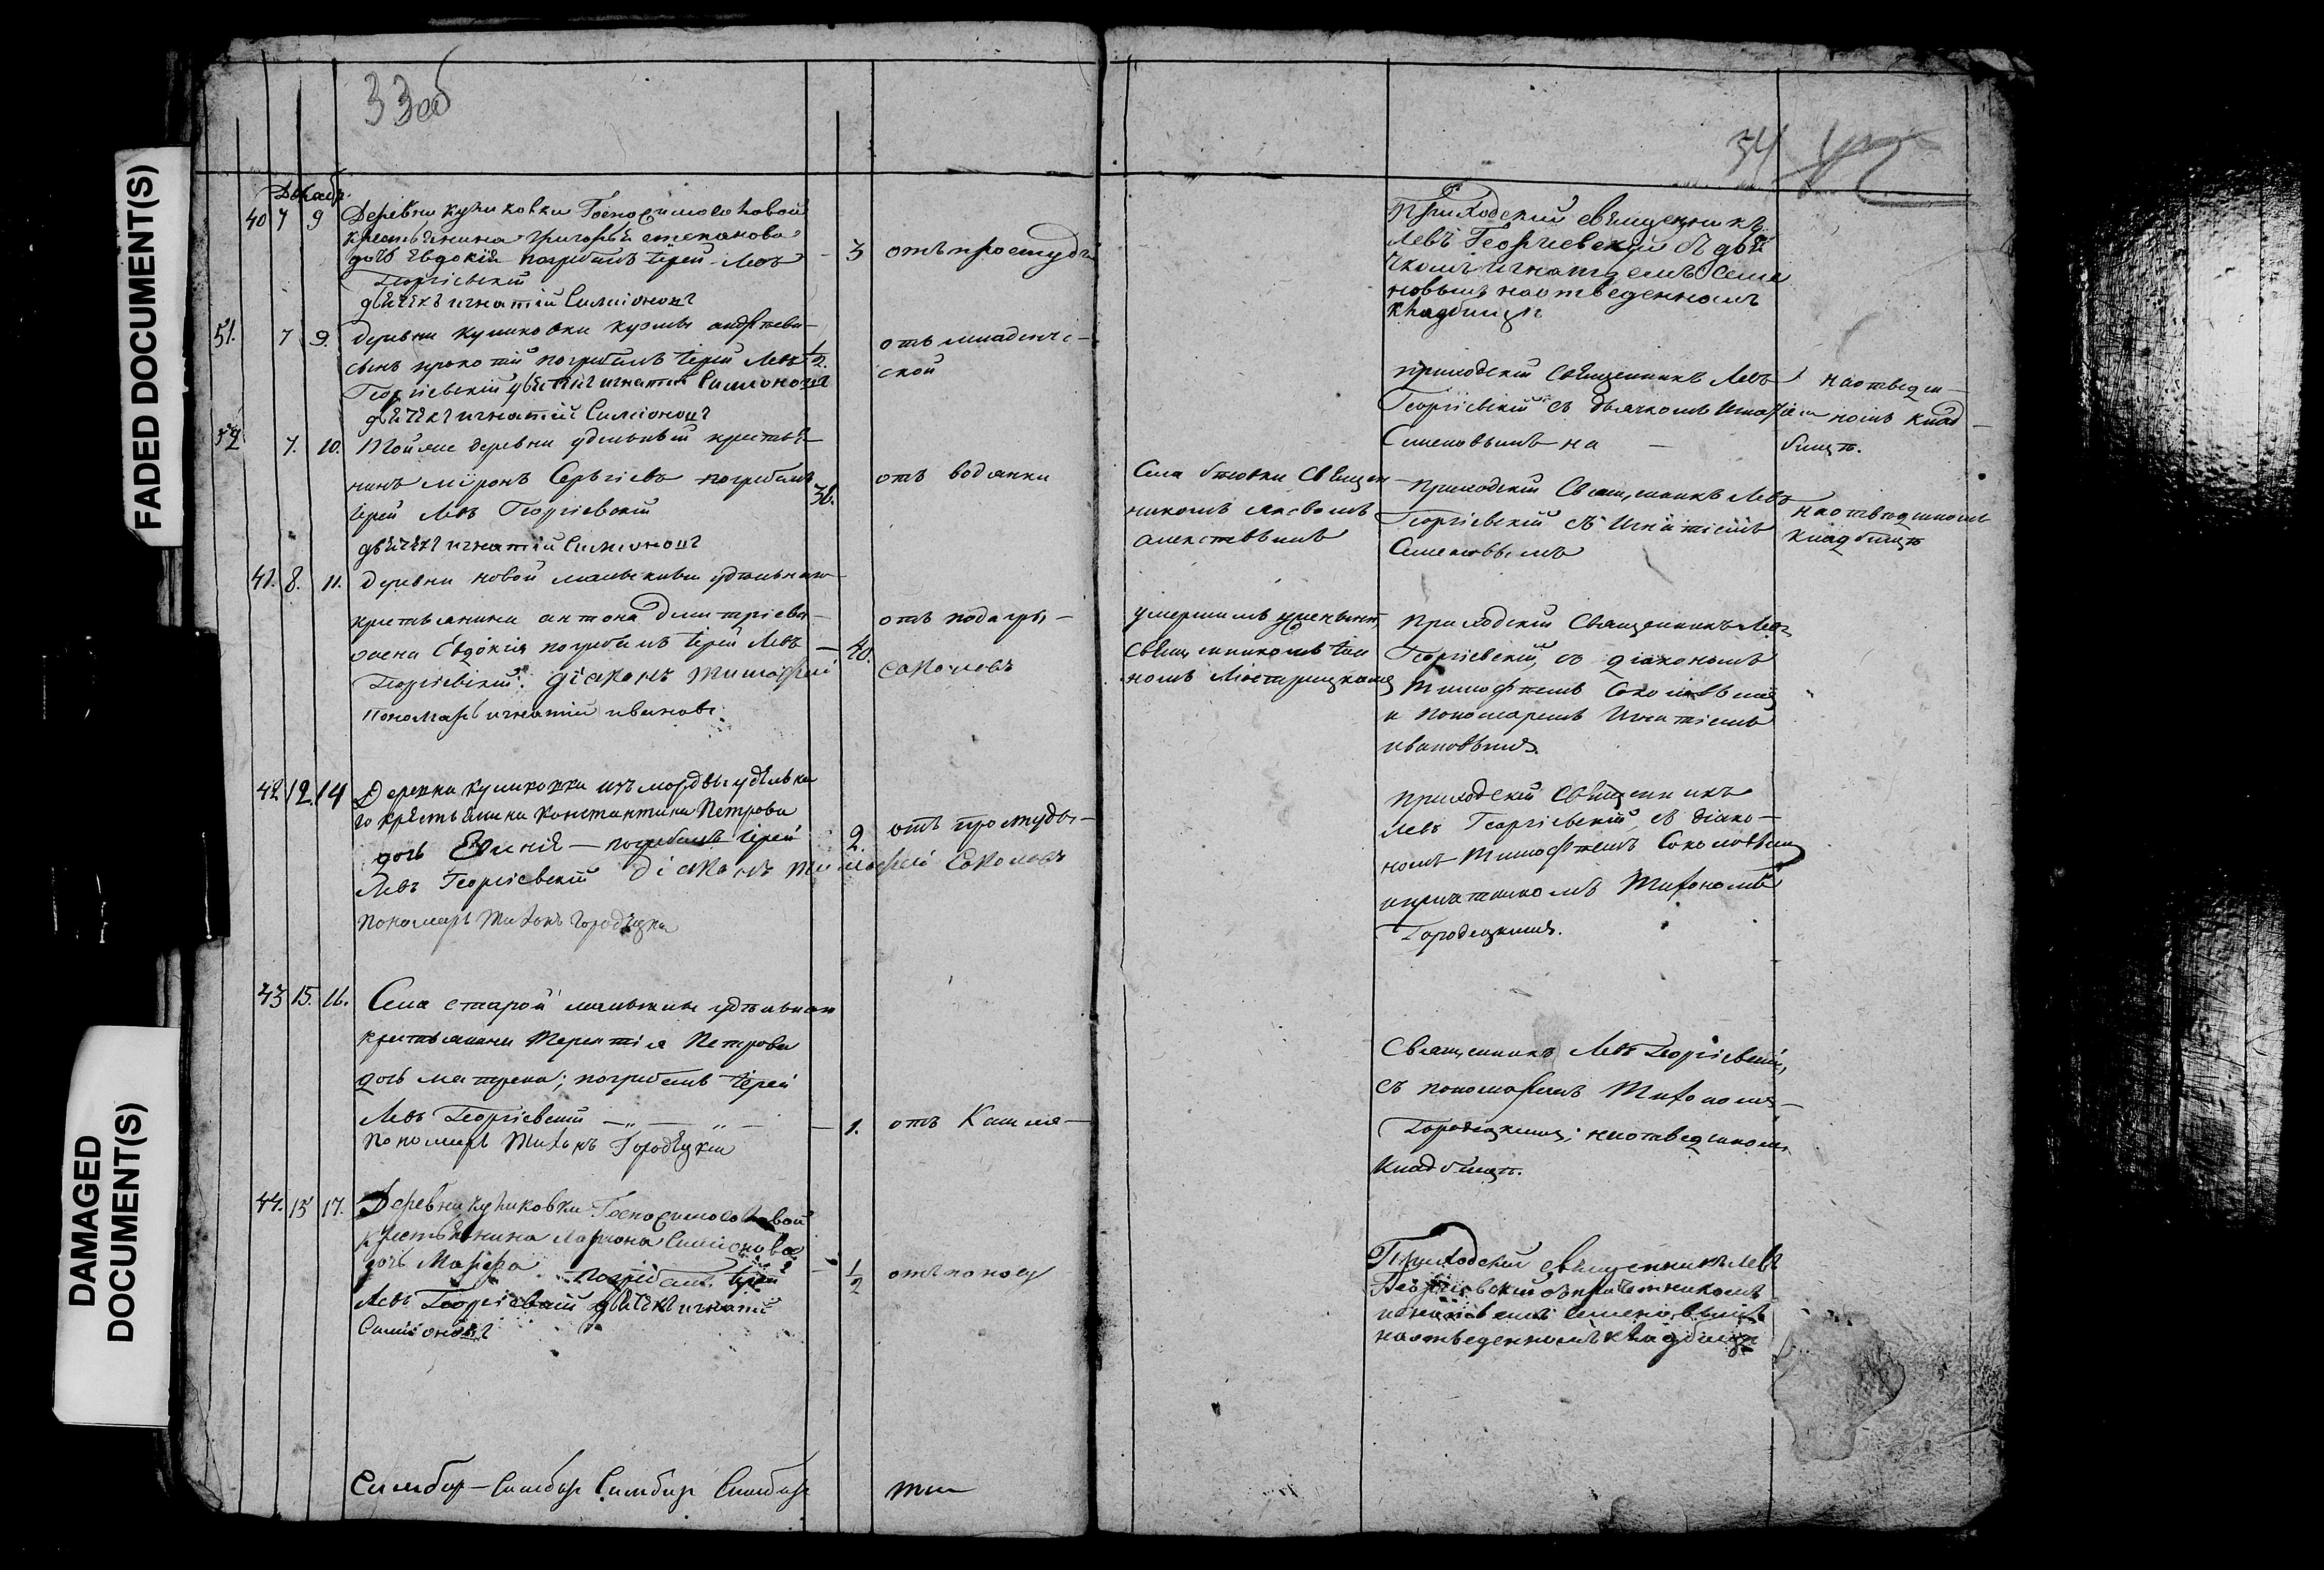 33 об
34
Декабр.
40 7 9 Деревни куликовки Госпо
крестьянина григорья степанова
дочь Евдокия погребалъ Іерей Левъ
Георгіевскій
дьячекъ игнатій Симіоновъ
3 отъ простуды
Приходскій священникъ
Левъ Георгіевскій съ дья
чкомъ игнатіемъ Семе
новымъ на отведенномъ
кладбищѣ
51. 7 9. деревни куликовки кузмы андреева
сынъ прокотій погребалъ Іерей Левъ
Георгіевскій дьячекъ игнатій Симіоновъ
дьячекъ игнатій Симіоновъ
1/2. отъ младенче-
ской
приходскій Священникъ Левъ
Георгіевскій съ дьячкомъ Игнатіем
Семеновымъ на —
на отведен-
номъ клад-
бищѣ.
52 7. 10. Той же деревни удельный крестья-
нинъ міронъ Сергіевъ погребалъ
Іерей Левъ Георгіевскій
дьячекъ игнатій Симіоновъ
36. отъ водянки
Села Священ
никомъ
алексѣевымъ
приходскій Священникъ Левъ
Георгіевскій съ Игнатіемъ
Семеновымъ
на отведенномъ
кладбищѣ
41. 8. 11. деревни новой малыкивы удѣльнаго
крестьянина антона дмитріева
жена Евдокія погребалъ Іерей Левъ
Георгіевскій. діаконъ тимофей
пономарь игнатій ивановъ
40. отъ подагры —
Соколовъ
священникомъ Іоан
номъ
приходскій Священникъ Левъ
Георгіевскій, съ діакономъ
тимофѣемъ Соколовымъ
и пономаремъ Игнатіемъ
ивановымъ.
42 12. 14 Деревни куликовки изъ мордвы удѣльна
го крестьянина константина Петрова
дочь погребалъ Іерей
Левъ Георгіевскій діаконъ тимофей Соколовъ
пономарь тихонъ городецки
2. отъ простуды —
приходскій Священникъ
Левъ Георгіевскій съ діако-
номъ тимофѣемъ Соколовым
и причетникомъ тихономъ
Городецкимъ.
43 15. 16. Села старой малыкивы удѣльнаго
крестьянина терентія Петрова
дочь матрена; погребалъ Іерей
Левъ Георгіевскій —„— —„—
пономарь тихонъ городецкій
1. отъ Кашля —
Священникъ Левъ Георгіевскій,
съ пономаремъ тихономъ
Городецкимъ; на отведенномъ
кладбищѣ.
44. 15 17. Деревни куликовки Госпо
крестьянина Симіонова
дочь Марфа погребалъ Іерей
Левъ Георгіевскій дьячекъ игнатій
Симіоновъ
1/2 отъ поносу
Приходскій священникъ Левъ
Георгіевскій съ причетникомъ
игнатіемъ семеновымъ
на отведенномъ кладбищѣ
Симбир — Симбир Симбир Симбир
FADED DOCUMENT(S)
DAMAGED
DOCUMENT(S)